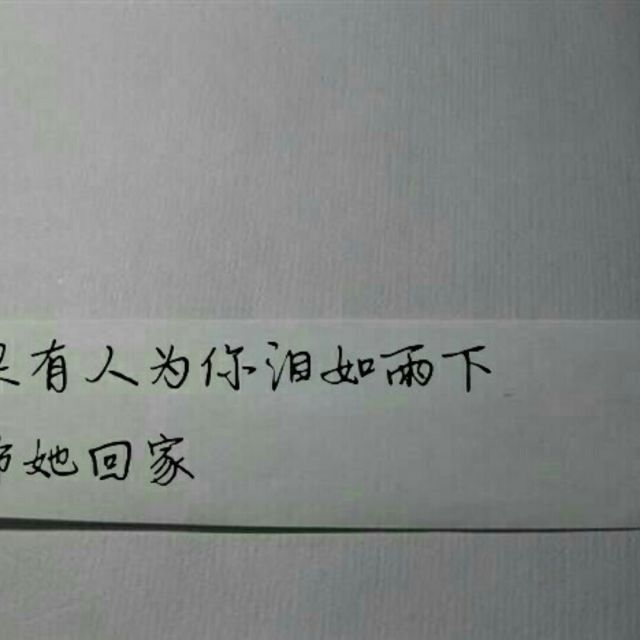 有人为你泪如雨下
她回家